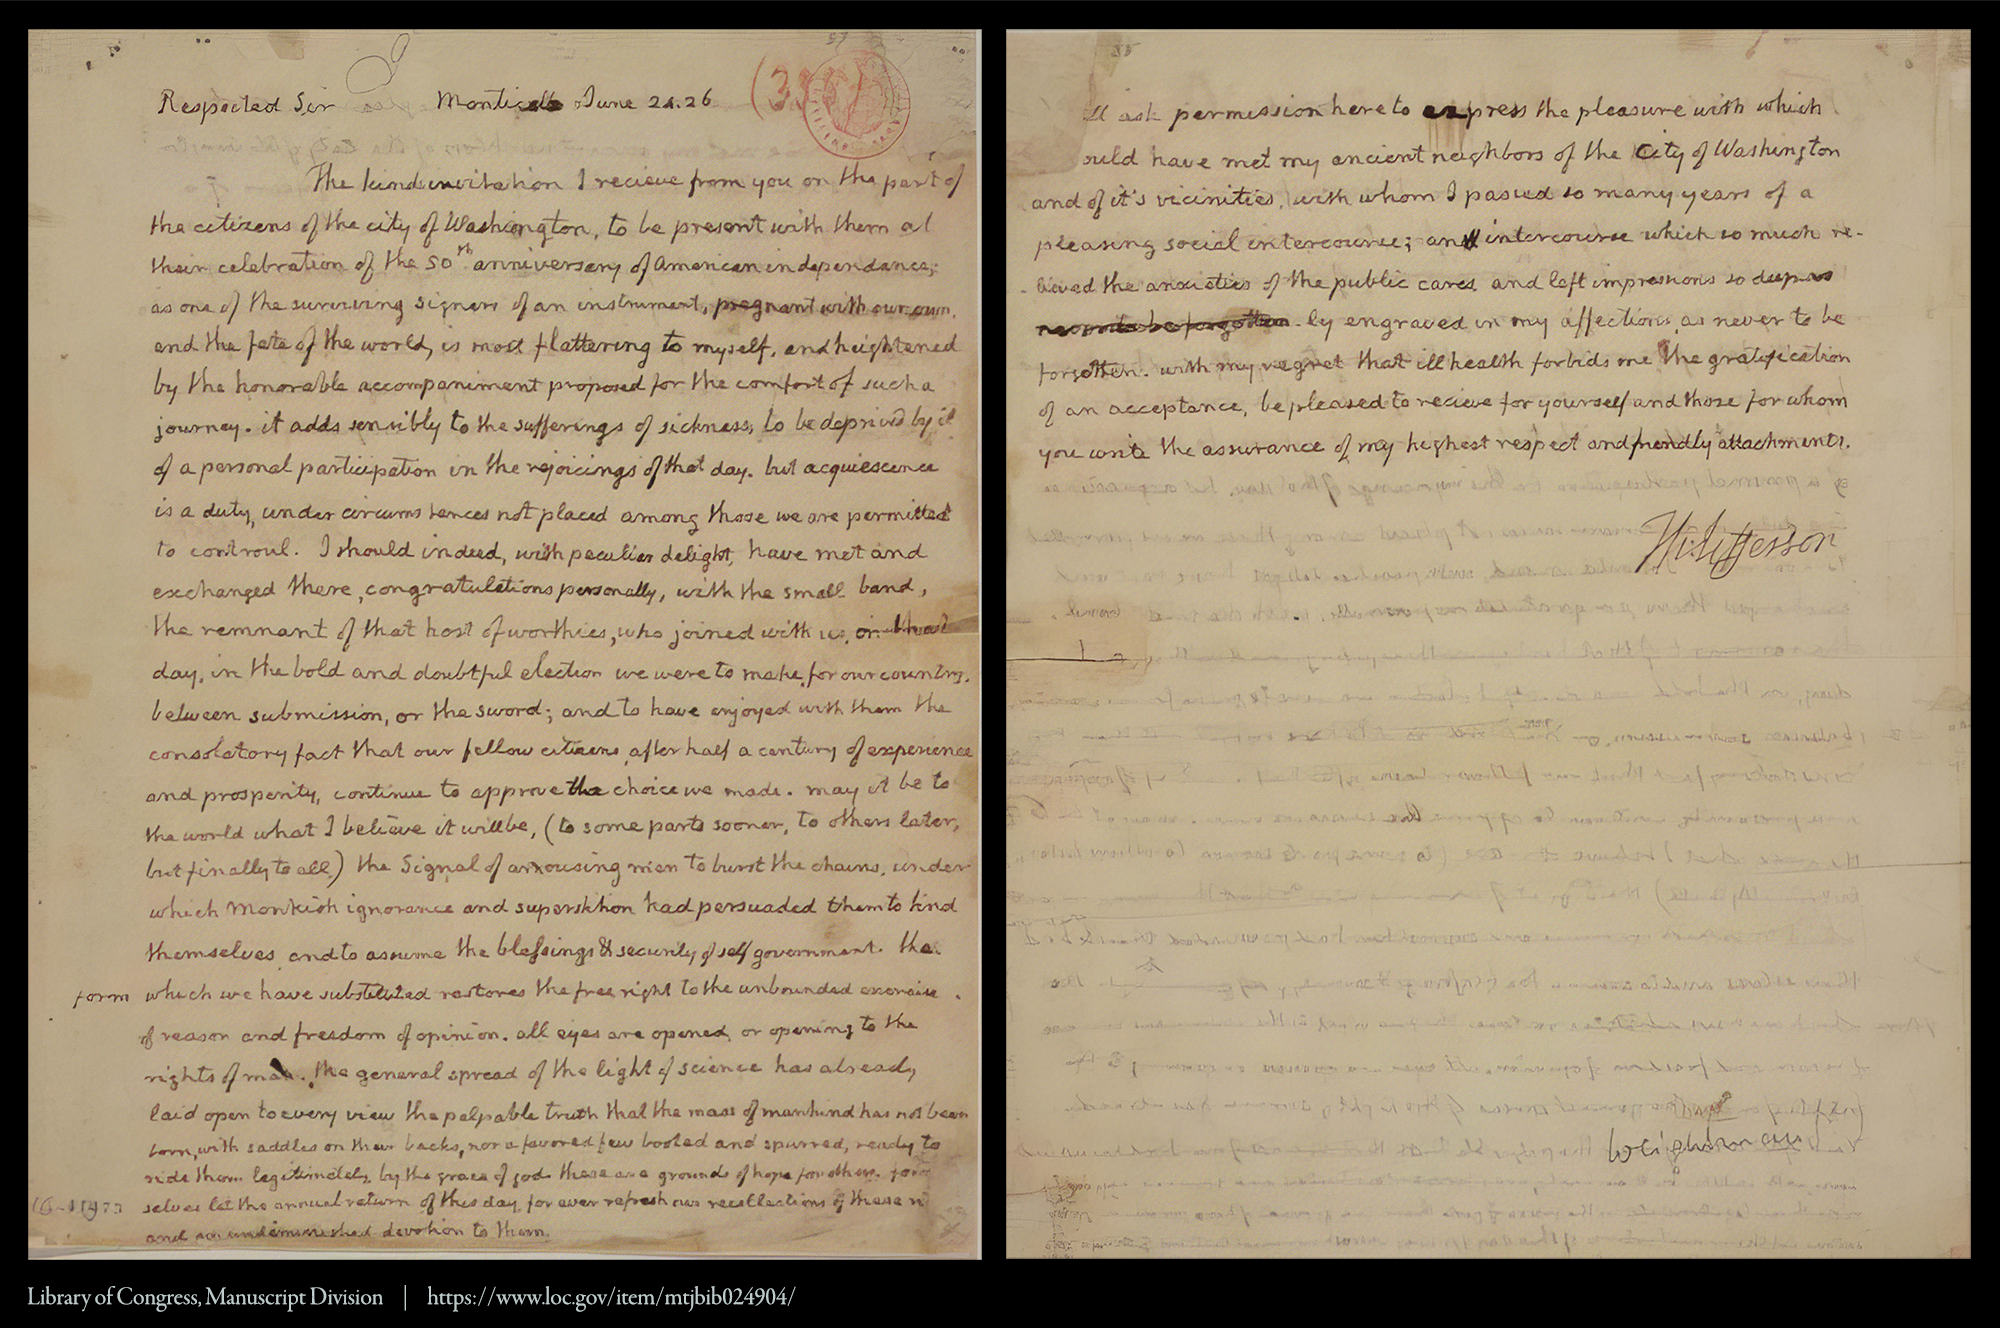 Respected Sir Monticello June 24. 26
The kind invitation I recieve from you on the part of
the citizens of the city of Washington, to be present with them at
their celebration of the 50th anniversary of American independance;
as one of the surviving signers of an instrument, pregnant with our own,
and the fate of the world, is most flattering to myself, and heightened
by the honorable accompaniment proposed for the comfort of such a
journey. it adds sensibly to the sufferings of sickness, to be deprived by it
of a personal participation in the rejoicings of that day. but acquiescence
is a duty, under circumstances not placed among those we are permitted
to controul. I should indeed, with peculiar delight, have met and
exchanged there, congratulations personally, with the small band,
the remnant of that host of worthies, who joined with us, on that
day, in the bold and doubtful election we were to make, for our country,
between submission, or the sword; and to have enjoyed with them the
consolatory fact that our fellow citizens, after half a century of experience
and prosperity, continue to approve the choice we made. may it be to
the world what I believe it will be, (to some parts sooner, to others later,
but finally to all.) the Signal of arousing men to burst the chains, under
which Monkish ignorance and superstition had persuaded them to bind
themselves, and to assume the blessings & security of self government. the
form which we have substituted restores the free right to the unbounded exercise
of reason and freedom of opinion. all eyes are opened, or opening to the
rights of man. the general spread of the light of science has already
laid open to every view the palpable truth that the mass of mankind has not been
born, with saddles on their backs, nor a favored few booted and spurred, ready to
ride them legitimately, by the grace of god. these are grounds of hope for others. for
selves let the annual return of this day, for ever refresh our recollections of these
and an undiminished devotion to them.
ask permission here to express the pleasure with which
ould have met my ancient neighbors of the City of Washington
and of it's vicinities, with whom I passed so many years of a
pleasing social intercourse; an intercourse which so much re-
lieved the anxieties of the public cares, and left impressions so deep
ly engraved in my affections, as never to be
forgotten. with my regret that ill health forbids me the gratification
of an acceptance, be pleased to recieve for yourself and those for whom
you write the assurance of my highest respect and friendly attachments.
Th: Jefferson
Weightman
Library of Congress, Manuscript Division | https://www.loc.gov/item/mtjbib024904/